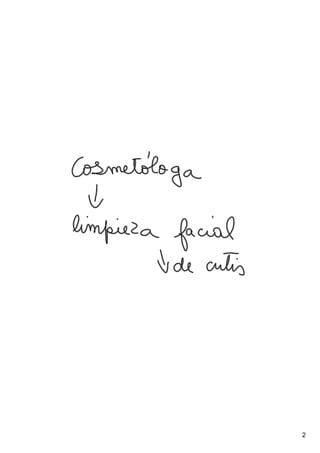 Cosmetóloga
↓
limpieza facial
↓ de cutis
2